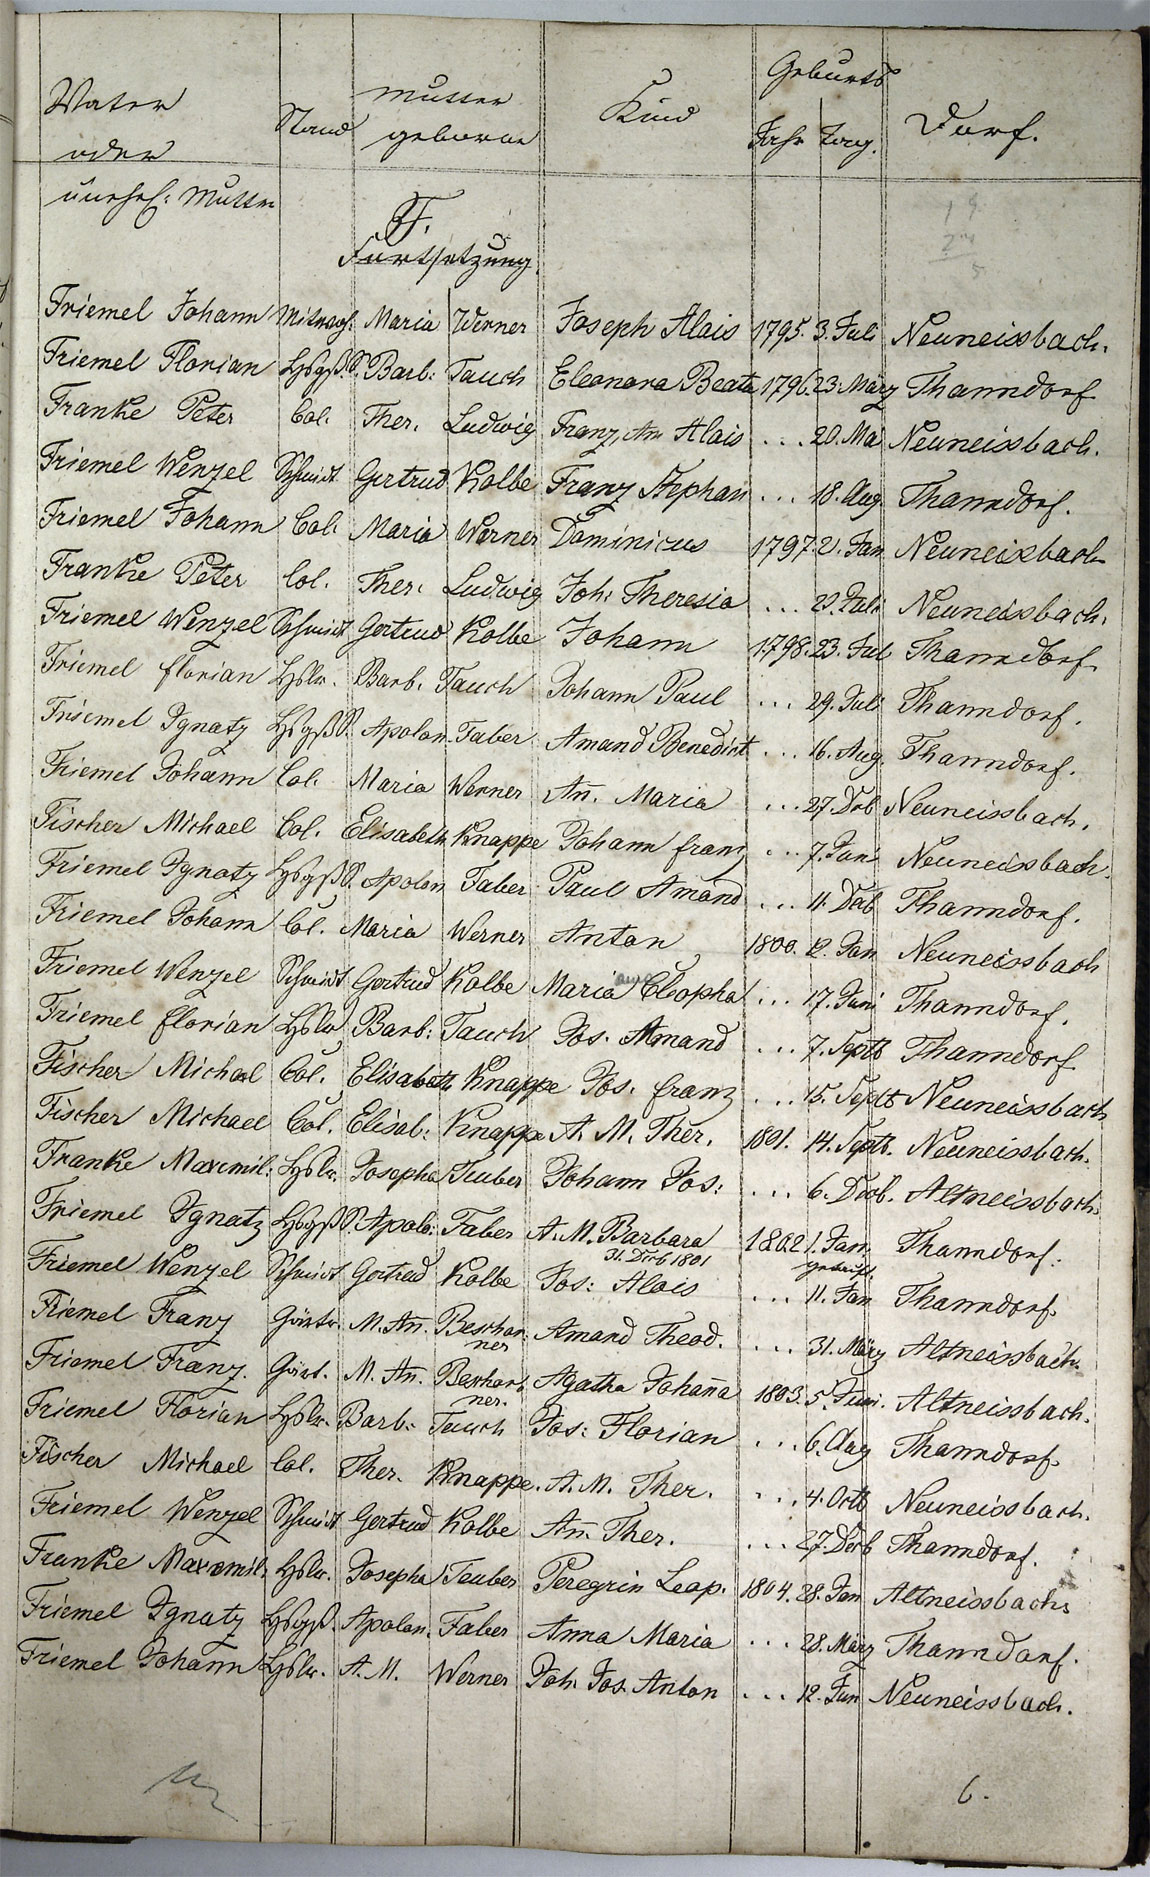 Vater oder unehel: Mutter
Stand
Mutter geborne
Kind
Geburts
Jahr Tag.
Dorf.
F.
Fortsetzung.
Friemel Johann Maria Werner Joseph Alois 1795. 3. Juli Neuneissbach.
Friemel Florian Barb: Tauch Eleonora Beata 1796. 23. März Thanndorf
Franke Peter Col. Ther. Ludwig Franz Alois ... 20. Mai Neuneissbach.
Friemel Wenzel Schmidt Gertrud Kolbe Franz Stephan ... 18. Aug Thanndorf.
Friemel Johann Col. Maria Werner Dominicus 1797. 2. Jan Neuneissbach
Franke Peter Col. Ther. Ludwig Joh: Theresia ... 29. Juli Neuneissbach.
Friemel Wenzel Schmidt Gertrud Kolbe Johann 1798. 23. Jul Thanndorf.
Friemel Florian Hslr. Barb. Tauch Johann Paul ... 29. Juli Thanndorf.
Friemel Ignatz Apolon. Faber Amand Benedict ... 16. Aug. Thanndorf.
Friemel Johann Col. Maria Werner An̄. Maria ... 27. Neuneissbach.
Fischer Michael Col. Elisabeth Knappe Johann Franz ... 7. Juni Neuneissbach.
Friemel Ignatz Apolon Faber Paul Amand ... 11. Thanndorf.
Friemel Johann Col. Maria Werner Anton 1800. 12. Jan Neuneissbach
Friemel Wenzel Schmidt Gertrud Kolbe Maria Cleopha ... 17. Juni Thanndorf.
Friemel Florian Hslr Barb: Tauch Jos. Amand ... 7. Septb Thanndorf
Fischer Michael Col. Elisabeth Knappe Jos. Franz ... 15. Septb Neuneissbach
Fischer Michael Col. Elisab: Knappe A. M. Ther. 1801. 14. Septb. Neuneissbach.
Franke Maxemil: Hslr. Josepha Teuber Johann Jos: ... 6. Altneissbach.
Friemel Ignatz Apolo: Faber A. M. Barbara 1802 1. Jan Thanndorf.
31. Decb 1801 getauft.
Friemel Wenzel Schmidt Gertrud Kolbe Jos: Alois ... 11. Jan Thanndorf.
Friemel Franz Gärtr. M. An̄. Beschorner Amand Theod. ... 31. März Altneissbach
Friemel Franz. Gärt. M. An. Beschorner. Agatha Johan̄a 1803. 5. Juni. Altneissbach.
Friemel Florian Hslr. Barb: Tauch Jos: Florian ... 6. Aug Thanndorf.
Fischer Michael Col. Ther. Knappe. A. M. Ther. ... 4. Octb Neuneissbach.
Friemel Wenzel Schmidt Gertrud Kolbe An̄. Ther. ... 27. Decb Thanndorf.
Franke Maxemil. Hslr. Josepha Teuber Peregrin Leop. 1804. 28. Jan Altneissbach
Friemel Ignatz Apolon. Faber Anna Maria ... 28. März Thanndorf.
Friemel Johann Hslr. A. M. Werner Joh. Jos. Anton ... 12. Jun Neuneissbach.
6.